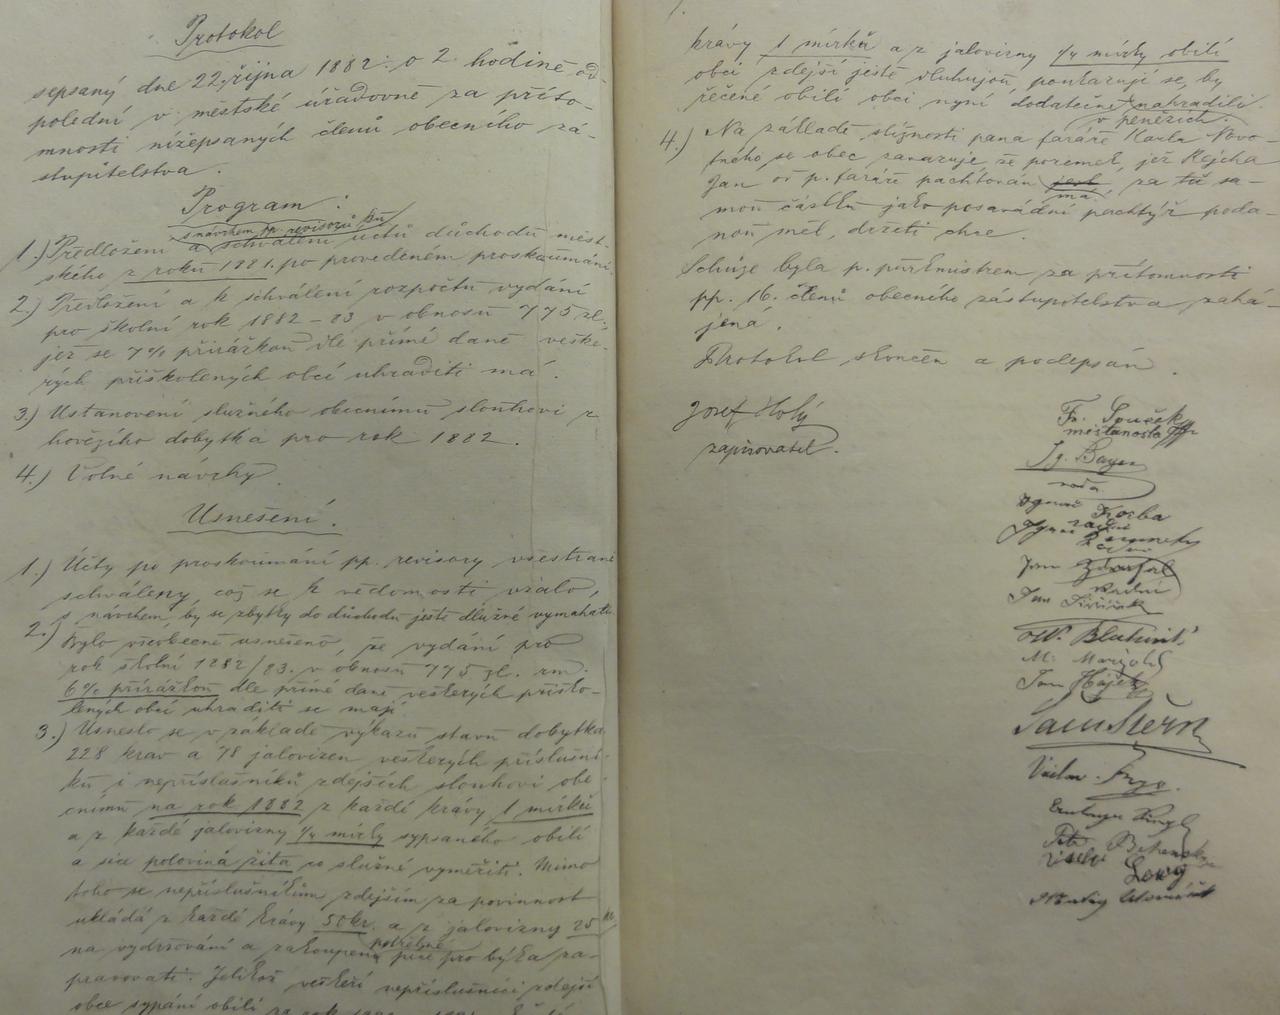 Protokol
sepsaný dne 22. října 1882 o 2 hodině od-
polední v městské úřadovně za příto-
mnosti nížepsaných členů obecního zá-
stupitelstva.
Program:
s návrhem pp. revisorů ku
1.) Předložení a schválení účtů důchodu měst-
ského z roku 1881. po provedeném proskoumání.
2.) Předložení a k schválení rozpočtu vydání
pro školní rok 1882-83 v obnosu 775 zl.
jež se 7% přirážkou dle přímé daně veške-
rých přiškolených obcí uhraditi má.
3.) Ustanovení služného obecnímu slouhovi z
hovězího dobytka pro rok 1882.
4.) Volné návrhy.
Usnešení.
1.) Účty po proskoumání pp. revisory všestraně
schváleny, což se k vědomosti vzalo,
s návrhem by se zbytky do důchodu ještě dlužné vymáhaly.
2.) Bylo všeobecně usnešeno, že vydání pro
rok školní 1882/83. v obnosu 775 zl. rm.
6% přirážkou dle přímé daně veškerých přiško-
lených obcí uhraditi se mají.
3.) Usneslo se v základě výkazu stavu dobytka
228 krav a 78 jalovizen veškerých příslušní-
ků i nepříslušníků zdejších slouhovi obe-
cnímu na rok 1882 z každé krávy 1 mírku
a z každé jalovizny 1/4 mírky sypaného obilí
a sice polovina žita co služné vyměřiti. Mimo
toho se nepříslušníkům zdejším za povinnost
ukládá z každé krávy 50 kr. a z jalovizny 25 kr.
na vydržování a zakoupení potřebné píce pro býka za-
pravovati. Jelikož veškeří nepříslušníci zdejší
obce sypání obilí za rok
krávy 1 mírku a z jalovizny 1/4 mírky obilí
obci zdejší ještě dluhujou, poukazují se, by
řečené obilí obci nyní dodatečně nahradili
v penězích.
4.) Na základě stížnosti pana faráře Karla Novo-
tného se obec zavazuje že pozemek, jež Rejcha
Jan od p. faráře pachtován jest má, za tu sa-
mou částku jako posavádní pachtýř poda-
nou měl, držeti chce.
Schůze byla p. purkmistrem za přítomnosti
pp. 16. členů obecního zástupitelstva zahá-
jená.
Protokol skončen a podepsán.
Josef Holý
zapisovatel.
Fr. Souček
měšťanosta
Ig. Bayer
rada
Ignac Korba
radní
Ignac
Jan Zdrafal
radní
Jan
W.
M.
Jan Hájek
Sam Stern
Václav
Petr
Löwy